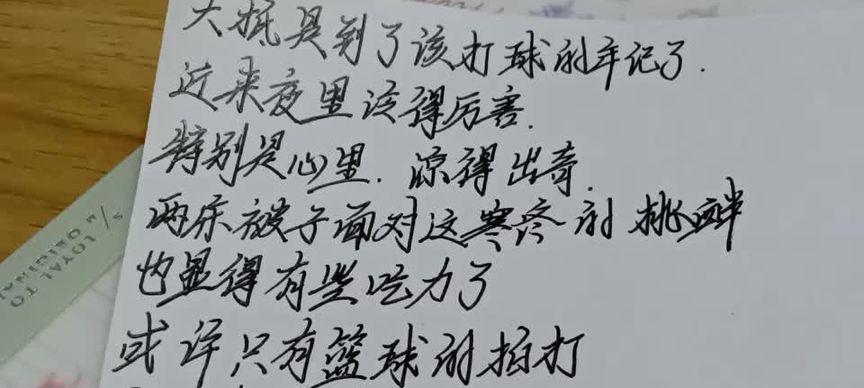 大抵是到了该打球的年记了.
近来夜里凉得厉害.
特别是心里.凉得出奇.
两床被子面对这寒疼的挑衅
也显得有些吃力了
或许只有篮球的拍打
LOYAL TO
ORIGINAL